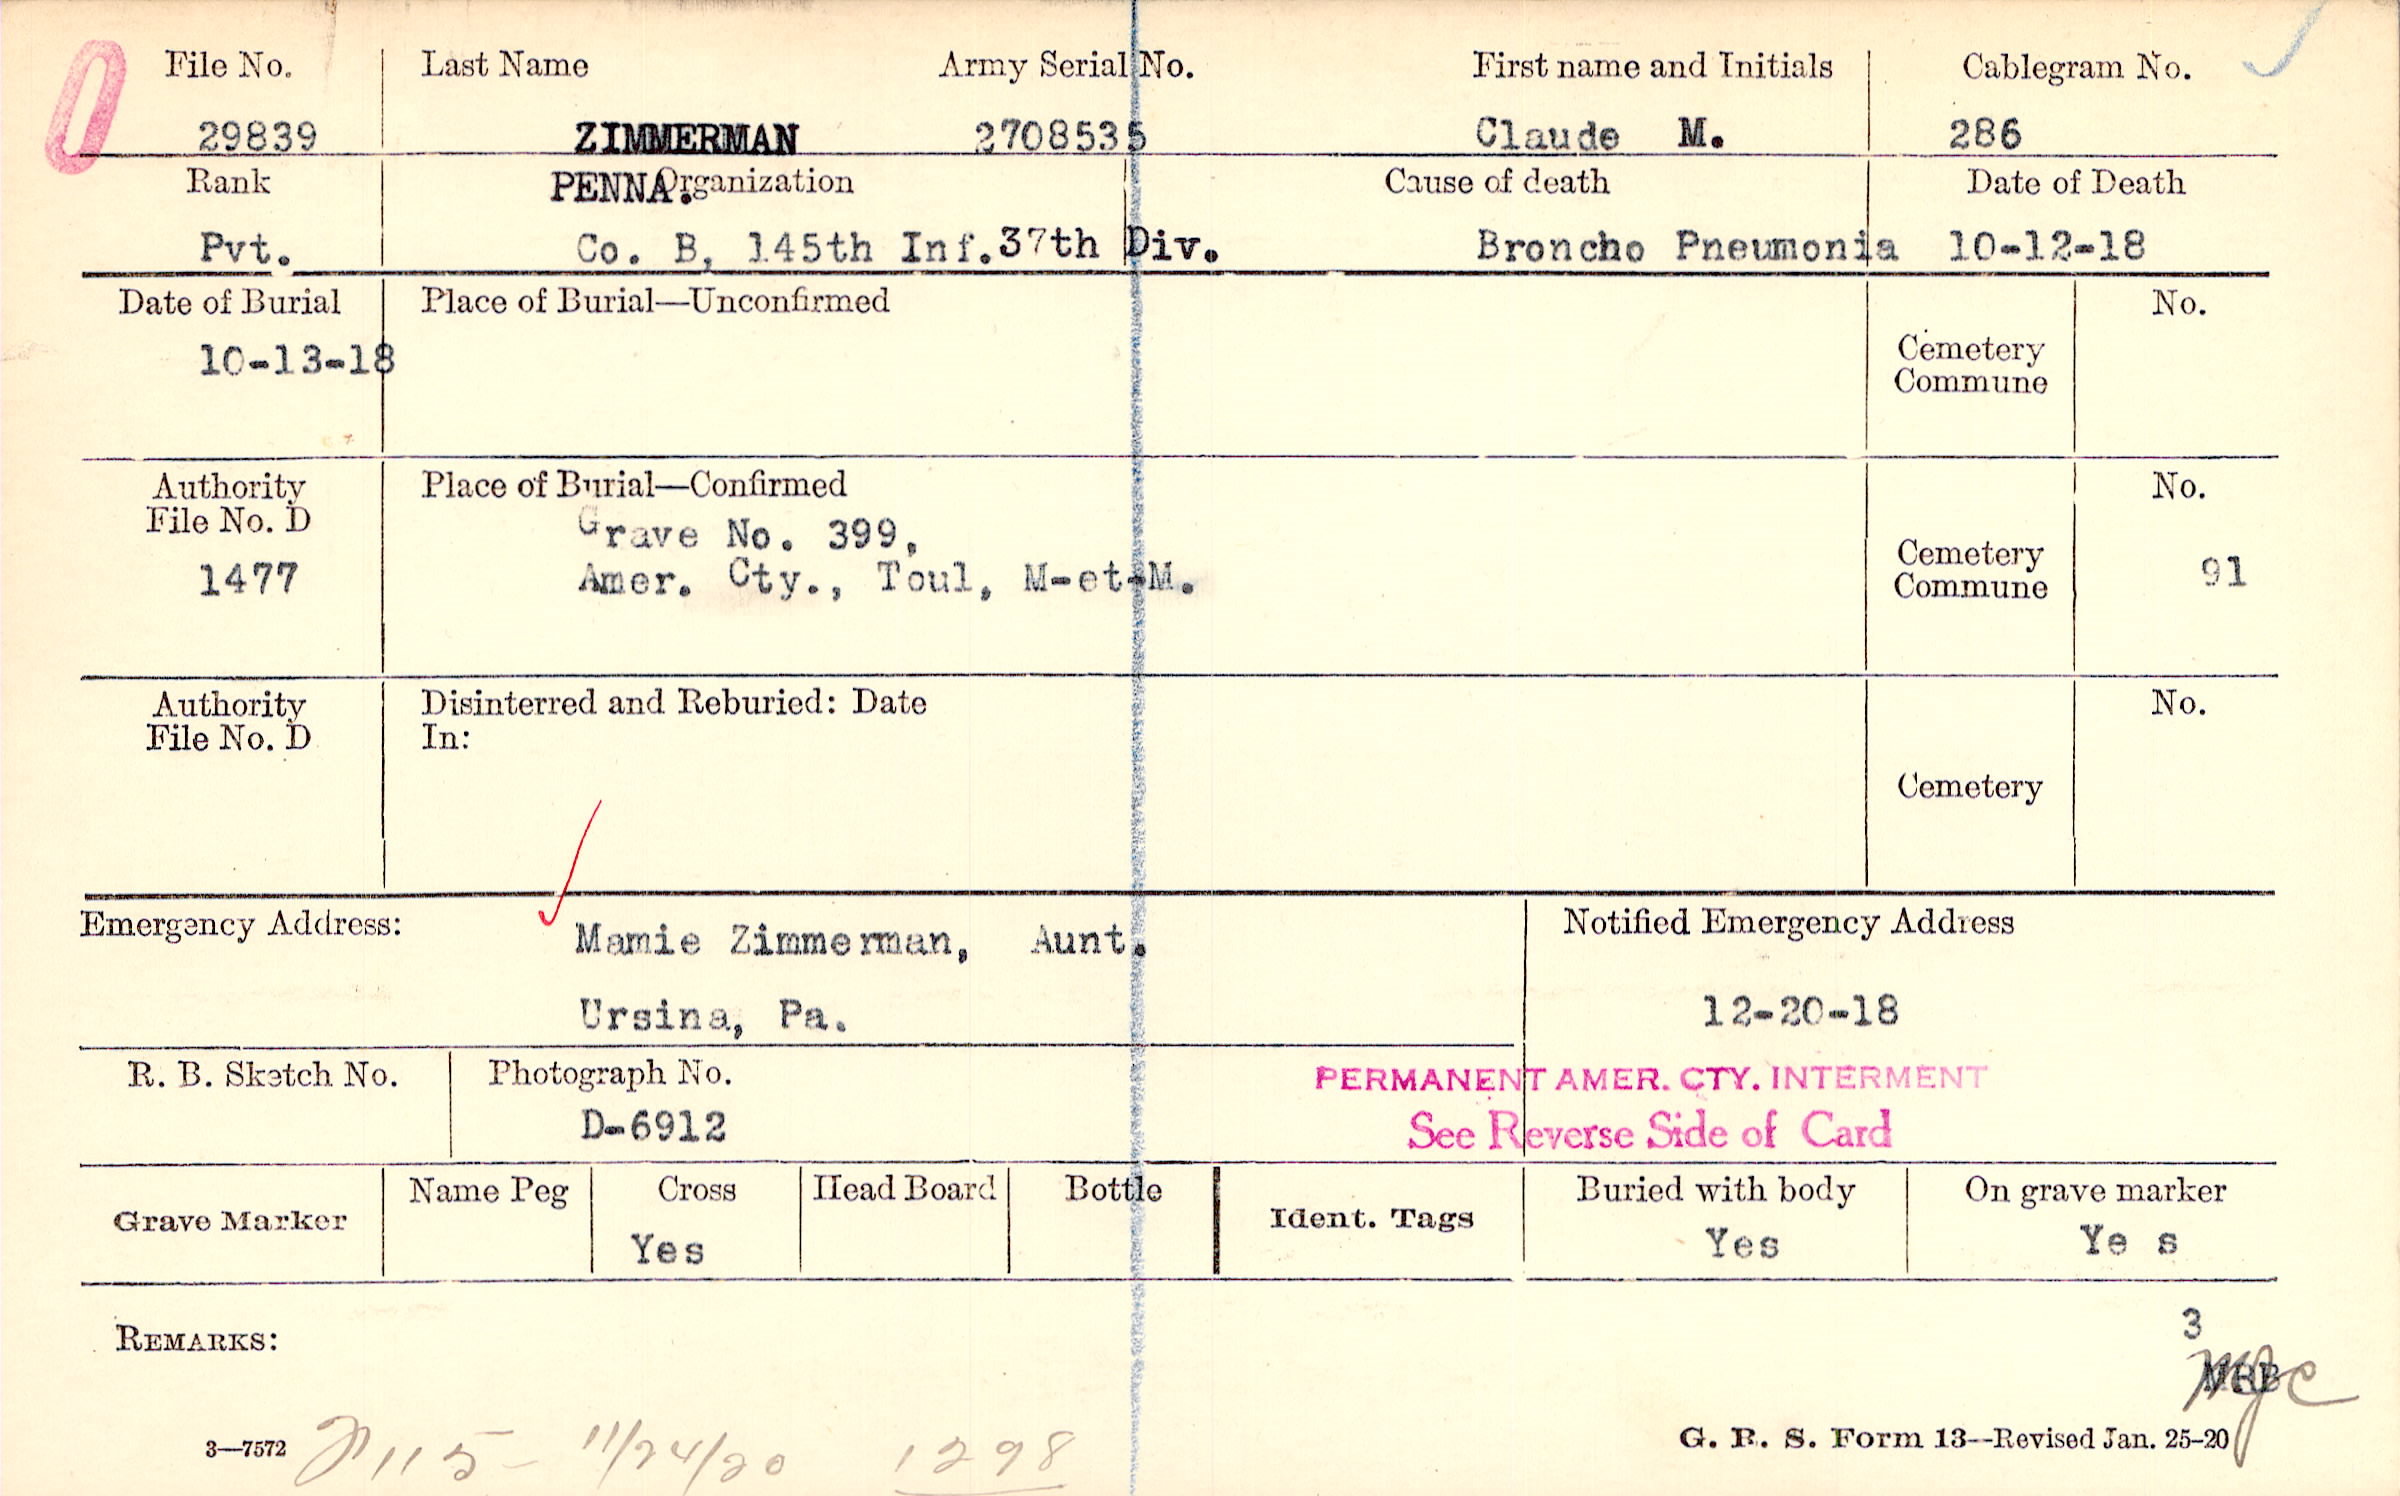 0
File No. Last Name Army Serial No. First name and Initials Cablegram No.
29839 ZIMMERMAN 2708535 Claude M. 286
Rank PENNA. Organization Cause of death Date of Death
Pvt. Co. B, 145th Inf. 37th Div. Broncho Pneumonia 10-12-18
Date of Burial Place of Burial—Unconfirmed No.
10-13-18
Cemetery
Commune
Authority Place of Burial—Confirmed No.
File No. D
Grave No. 399,
1477 Amer. Cty., Toul, M-et-M.
Cemetery
Commune 91
Authority Disinterred and Reburied: Date No.
File No. D In:
Cemetery
Emergency Address: Notified Emergency Address
Mamie Zimmerman, Aunt.
Ursina, Pa. 12-20-18
R. B. Sketch No. Photograph No.
D-6912
PERMANENT AMER. CTY. INTERMENT
See Reverse Side of Card
Grave Marker Name Peg Cross Head Board Bottle Ident. Tags Buried with body On grave marker
Yes Yes Ye s
REMARKS:
3
MRB
3—7572 115- 11/24/20 1298
G. R. S. Form 13—Revised Jan. 25-20